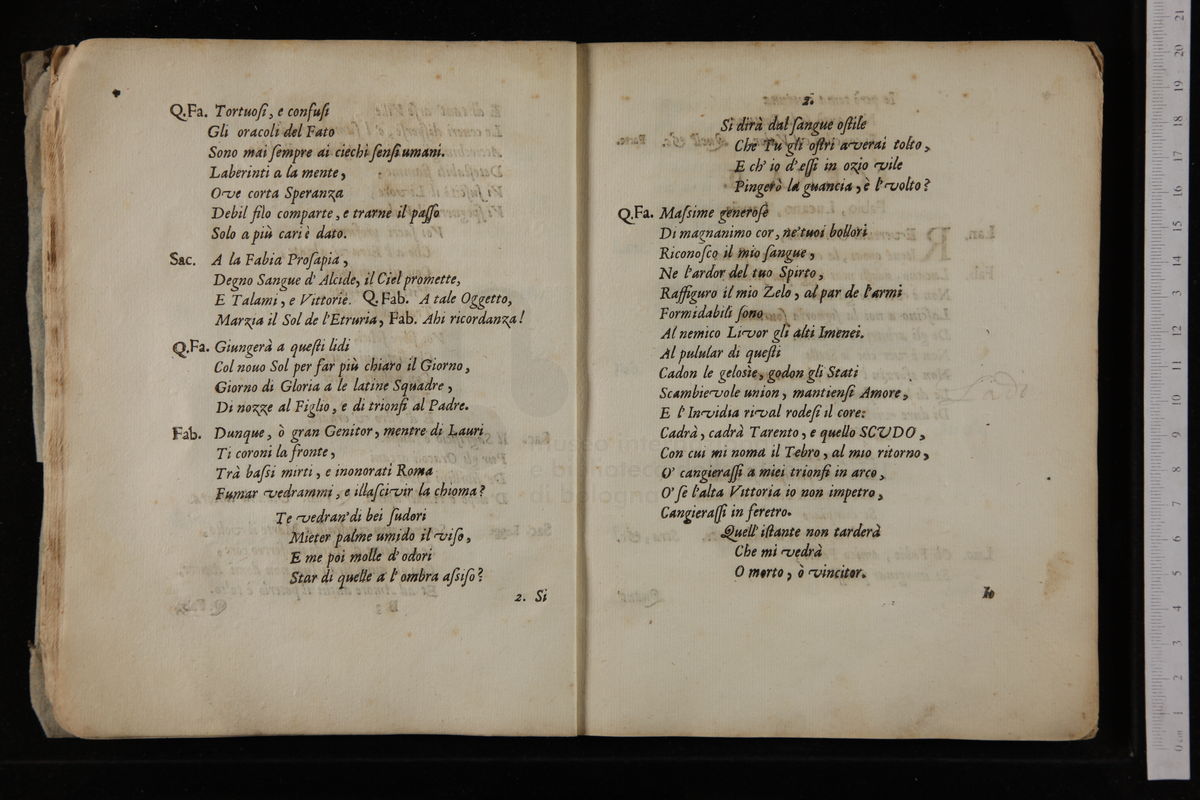 Q.Fa. Tortuosi, e confusi
Gli oracoli del Fato
Sono mai sempre ai ciechi sensi umani.
Laberinti a la mente,
Ove corta Speranza
Debil filo comparte, e trarne il passo
Solo a più cari è dato.
Sac. A la Fabia Prosapia,
Degno Sangue d' Alcide, il Ciel promette,
E Talami, e Vittorie. Q.Fab. A tale Oggetto,
Marzia il Sol de l'Etruria, Fab. Ahi ricordanza!
Q.Fa. Giungerà a questi lidi
Col nouo Sol per far più chiaro il Giorno,
Giorno di Gloria a le latine Squadre,
Di nozze al Figlio, e di trionfi al Padre.
Fab. Dunque, ò gran Genitor, mentre di Lauri
Ti coroni la fronte,
Trà bassi mirti, e inonorati Roma
Fumar vedrammi, e illascivir la chioma?
Te vedran' di bei sudori
Mieter palme umido il viso,
E me poi molle d' odori
Star di quelle a l' ombra assiso?
2. Si
2.
Si dirà dal sangue ostile
Che Tu gli ostri averai tolto,
E ch' io d' essi in ozio vile
Pingerò la guancia, è l' volto?
Q.Fa. Massime generose
Di magnanimo cor, ne' tuoi bollori
Riconosco il mio sangue,
Ne l'ardor del tuo Spirto,
Raffiguro il mio Zelo, al par de l'armi
Formidabili sono
Al nemico Livor gli alti Imenei.
Al pulular di questi
Cadon le gelosie, godon gli Stati
Scambievole union, mantiensi Amore,
E l' Invidia rival rodesi il core:
Cadrà, cadrà Tarento, e quello SCVDO,
Con cui mi noma il Tebro, al mio ritorno,
O' cangierassi a miei trionfi in arco,
O' se l'alta Vittoria io non impetro,
Cangierassi in feretro.
Quell' istante non tarderà
Che mi vedrà
O morto, ò vincitor.
Io